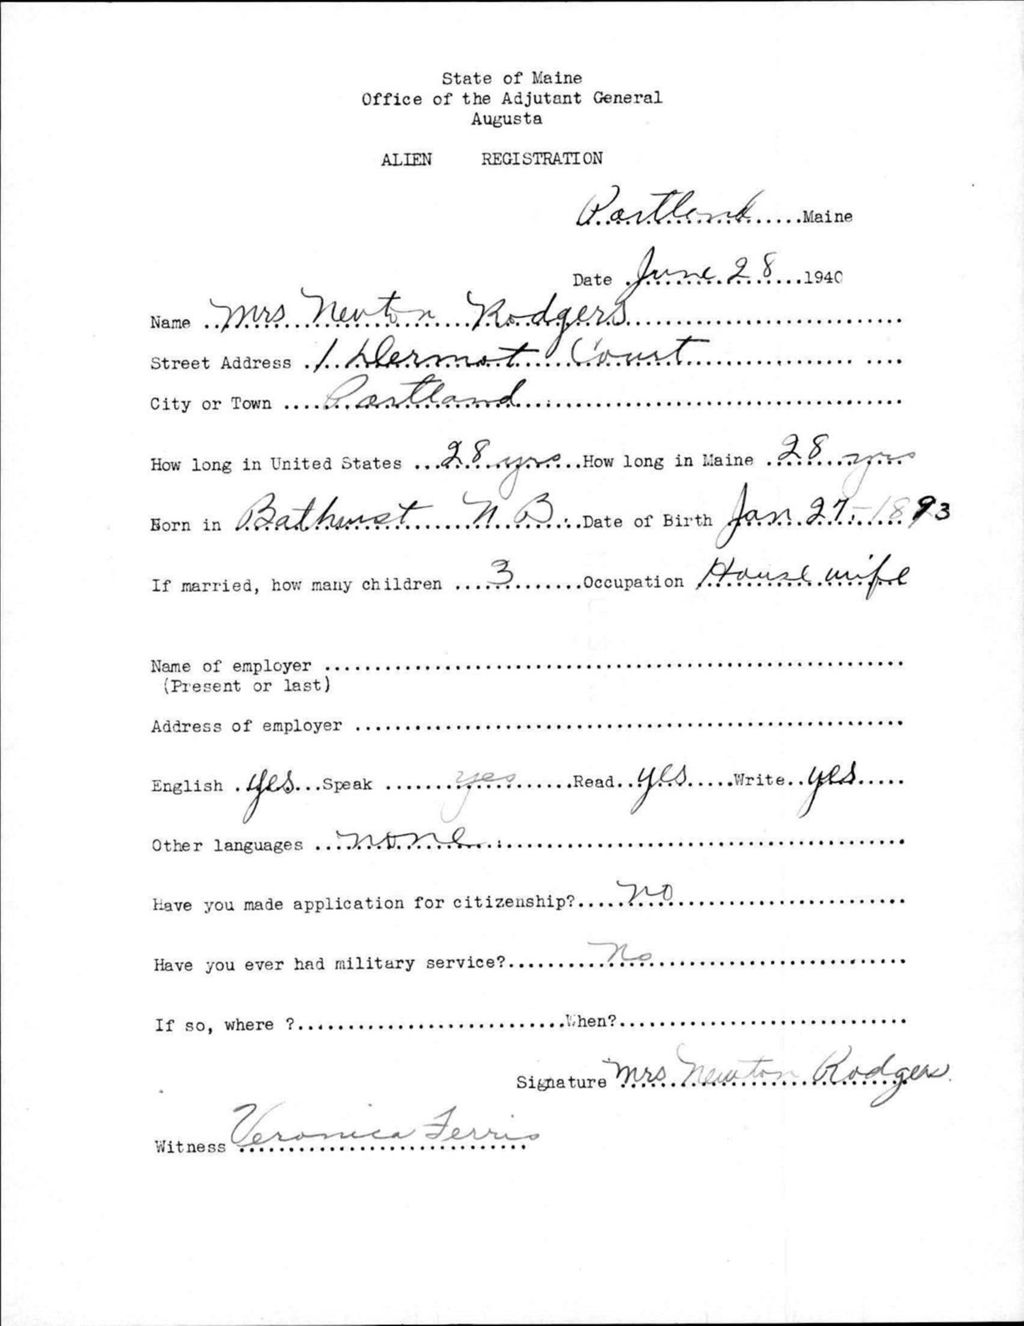 State of Maine
Office of the Adjutant General
Augusta
ALIEN REGISTRATION
Portland Maine
Date June 28 1940
Name Mrs Newton Rodgers
Street Address 1 Dermot Court
City or Town Portland
How long in United States 28 yrs How long in Maine 28 yrs
Born in Bathurst N. B. Date of Birth Jan 27-1893
If married, how many children 3 Occupation House wife
Name of employer
(Present or last)
Address of employer
English yes Speak yes Read yes Write yes
Other languages none
Have you made application for citizenship? no
Have you ever had military service? No
If so, where ? When?
Signature Mrs Newton Rodgers
Witness Veronica Ferris